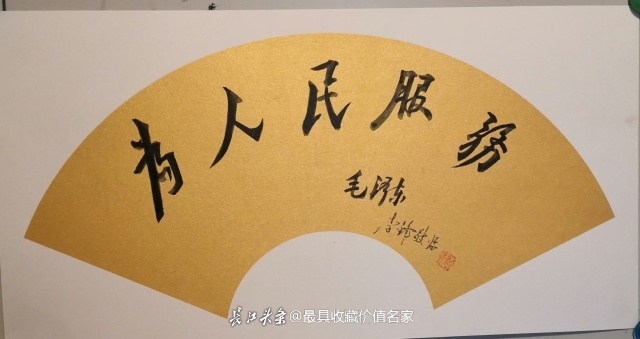 为人民服务
毛泽东
长江头条@最具收藏价值名家